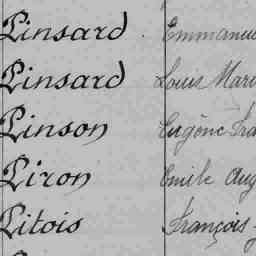 Pinsard Emmanue
Pinsard Louis Mari
Pinson Eugène Fra
Piron Emile Aug
Pitois François